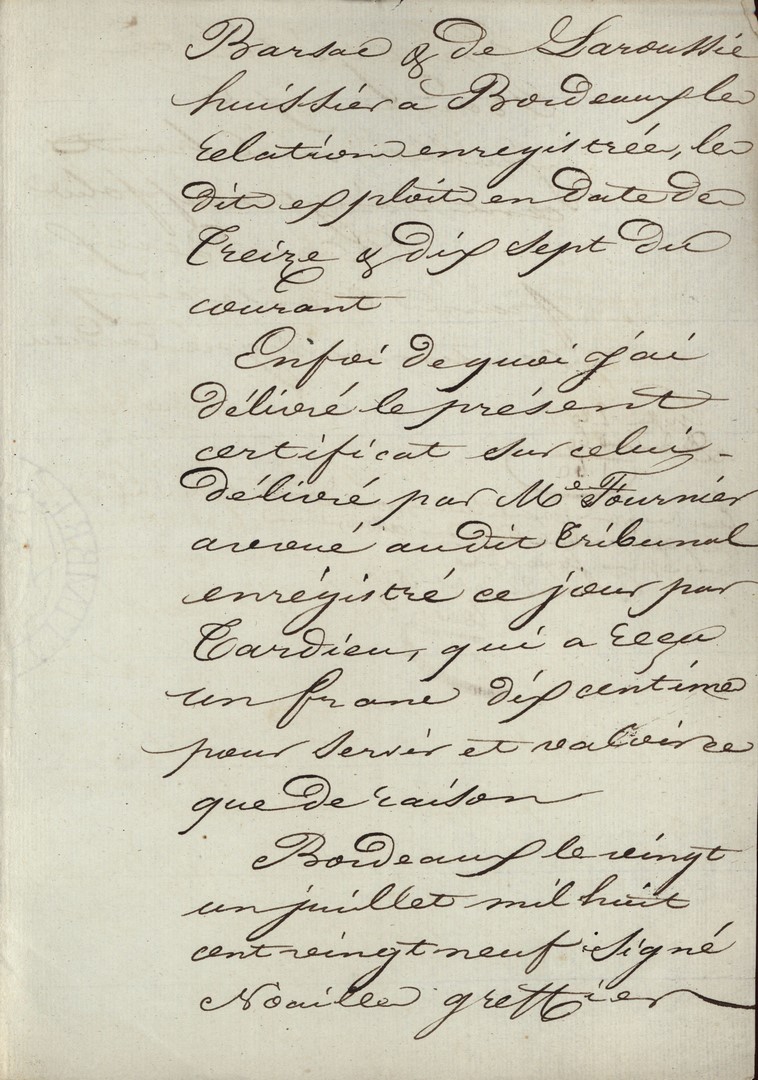 Barsac & de Laroussie
huissier a Bordeaux le
relation enregistrée, le
dit exploit en date de
Treize & dix sept du
courant
En foi de quoi j'ai
délivré le présent
certificat sur celui-
délivré par Me Fournier
avoué audit Tribunal
enrégistré ce jour par
Tardieu, qui a reçu
un franc dix centime
pour servir et valoir ce
que de raison
Bordeaux le vingt
un juillet mil huit
cent vingt neuf signé
Noaille greffier